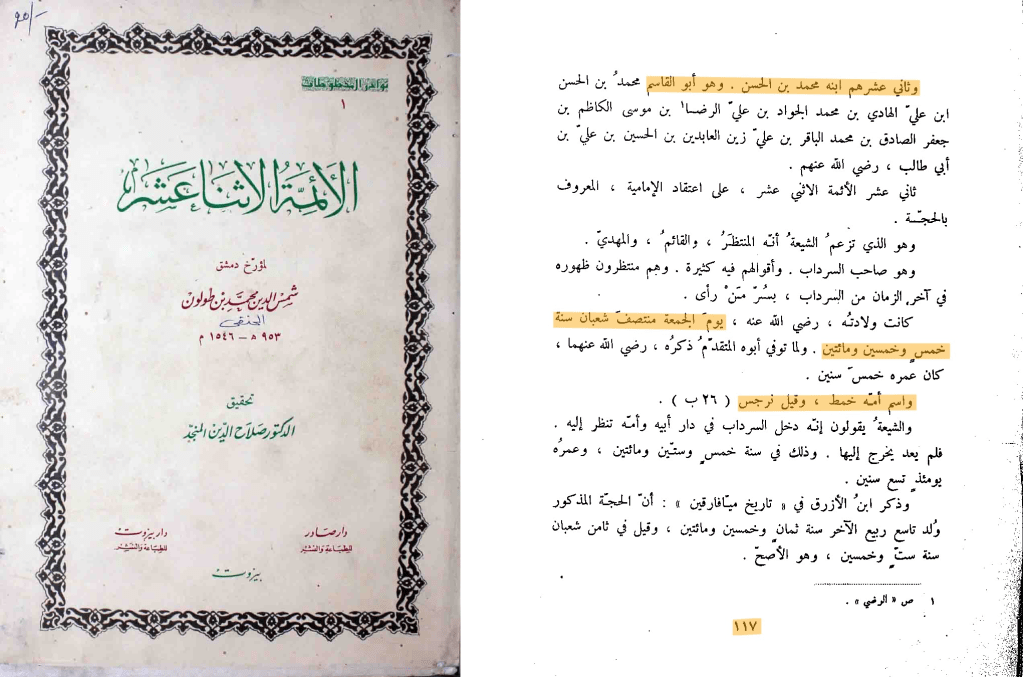 ٢٠/-
نوادر المخطوطات
١
الأئمّة الاثنا عشر
لمؤرّخ دمشق
شمس الدين محمّد بن طولون
الحنفي
٩٥٣ ه – ١٥٤٦ م
تحقيق
الدكتور صلاح الدّين المنجّد
دار صادر
للطباعة والنشر
دار بيروت
للطباعة والنشر
بيروت
وثاني عشرهم ابنه محمد بن الحسن . وهو أبو القاسم محمدُ بن الحسن
ابن عليّ الهادي بن محمد الجواد بن عليّ الرضا١ بن موسى الكاظم بن
جعفر الصادق بن محمد الباقر بن عليّ زين العابدين بن الحسين بن عليّ بن
أبي طالب ، رضي الله عنهم .
ثاني عشر الأئمة الاثني عشر ، على اعتقاد الإمامية ، المعروف
بالحجّة .
وهو الذي تزعمُ الشيعةُ أنّه المنتظَرُ ، والقائمُ ، والمهديّ .
وهو صاحب السرداب . وأقوالهم فيه كثيرة . وهم منتظرون ظهوره
في آخر الزمان من السرداب ، بسُرّ مَنْ رأى .
كانت ولادتُه ، رضي الله عنه ، يومَ الجمعة منتصفَ شعبان سنة
خمسٍ وخمسين ومائتين . ولما توفي أبوه المتقدّمُ ذكرُه ، رضي الله عنهما ،
كان عمره خمسَ سنين .
واسم أمّه خمط ، وقيل نرجس ( ٢٦ ب ) .
والشيعةُ يقولون إنّه دخل السرداب في دار أبيه وأمّه تنظر إليه .
فلم يعد يخرج إليها . وذلك في سنة خمسٍ وستّين ومائتين ، وعمرُه
يومئذٍ تسع سنين .
وذكر ابنُ الأزرق في « تاريخ ميّافارقين » : أنّ الحجّة المذكور
وُلد تاسع ربيع الآخر سنة ثمانٍ وخمسين ومائتين ، وقيل في ثامن شعبان
سنة ستٍّ وخمسين ، وهو الأصحّ .
١ ص « الرضي » .
١١٧